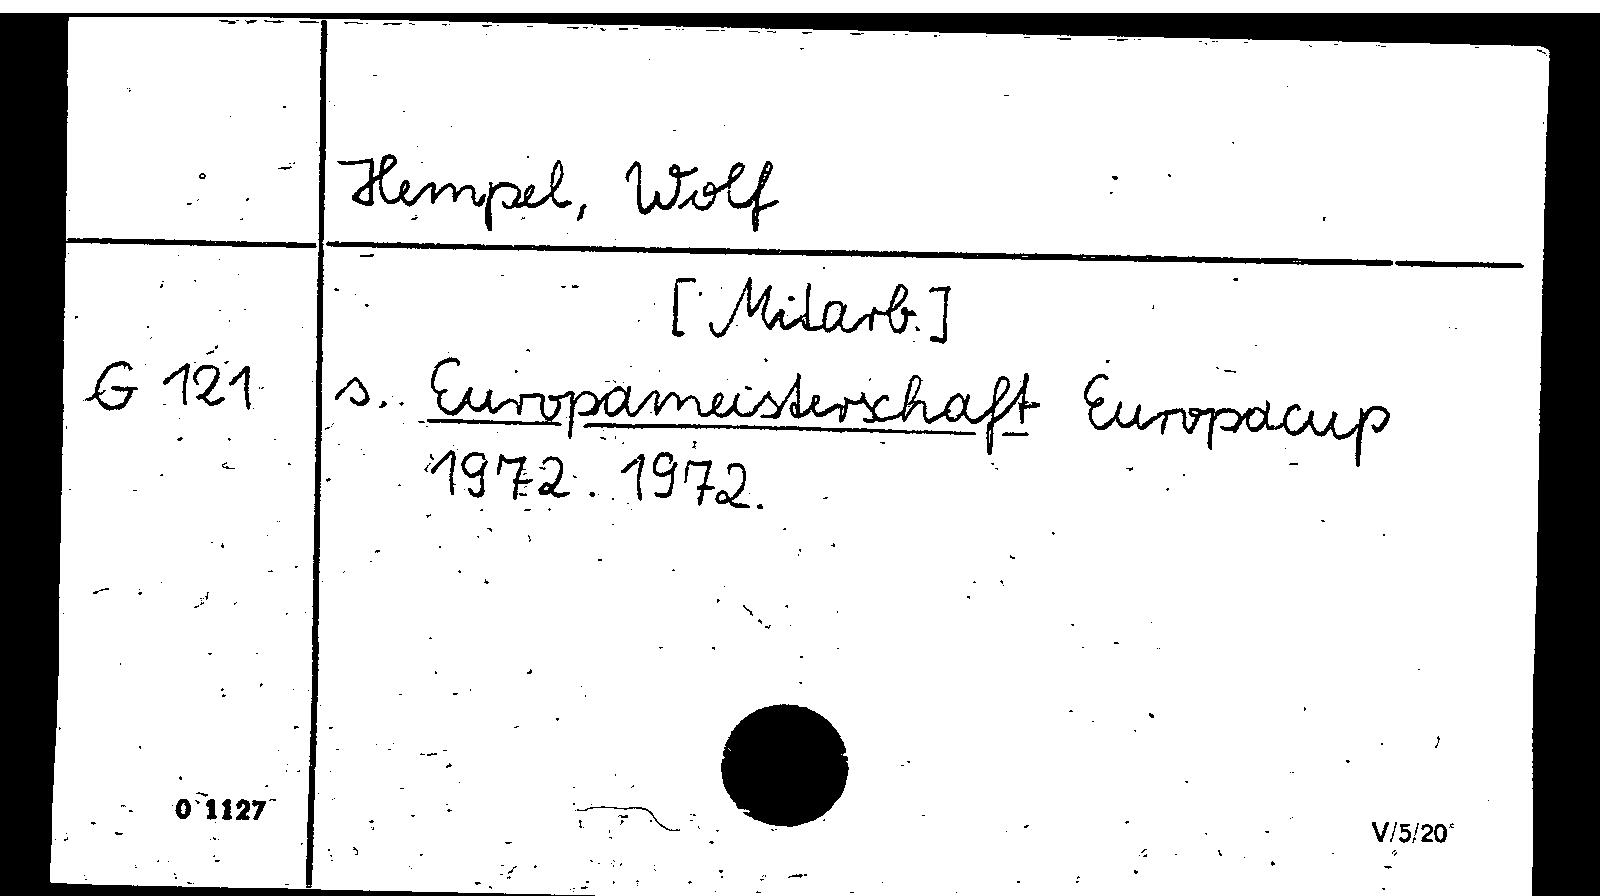 Hempel, Wolf
[Mitarb.]
G 121 s. Europameisterschaft Europacup
1972. 1972.
0 1127
V/5/20